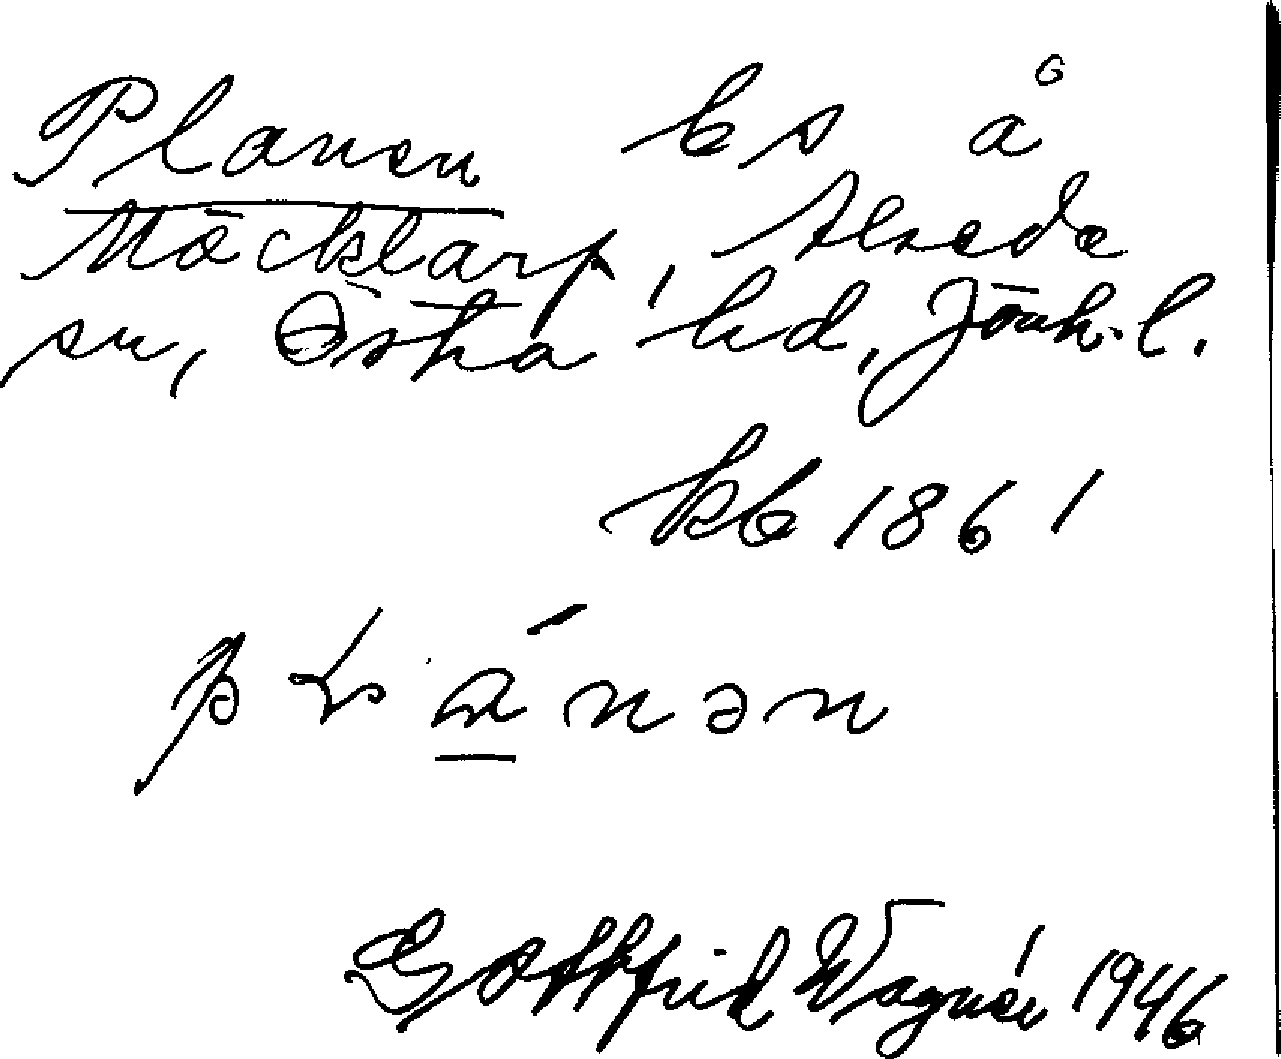 Planen bs å
Möcklarp, Alseda
sn, Östra hd, Jönk. l.
kb 1861
plánən
Gottfrid Wagnér 1946